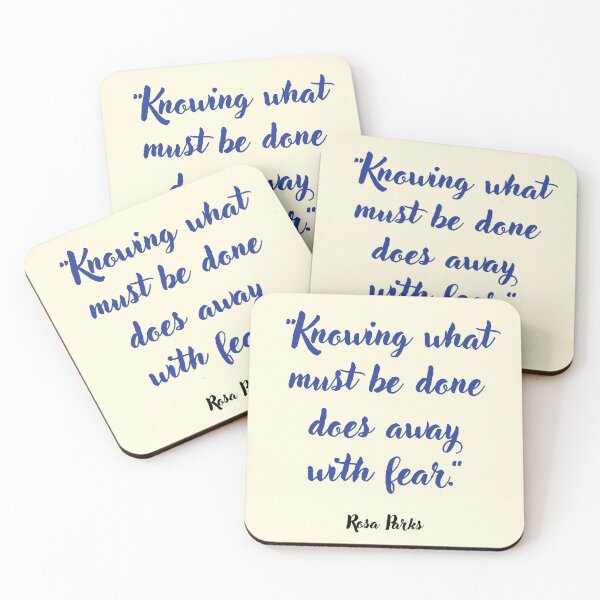 "Knowing what
must be done
way
"Knowing what
must be done
does away
with fear."
"Knowing what
must be done
does away
with fea
Rosa Pa
"Knowing what
must be done
does away
with fear."
Rosa Parks